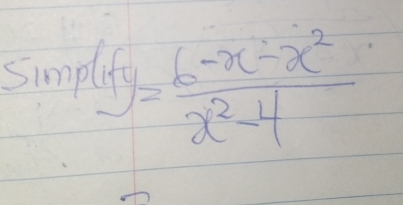 Simplify = (6-x-x²)/(x²-4)